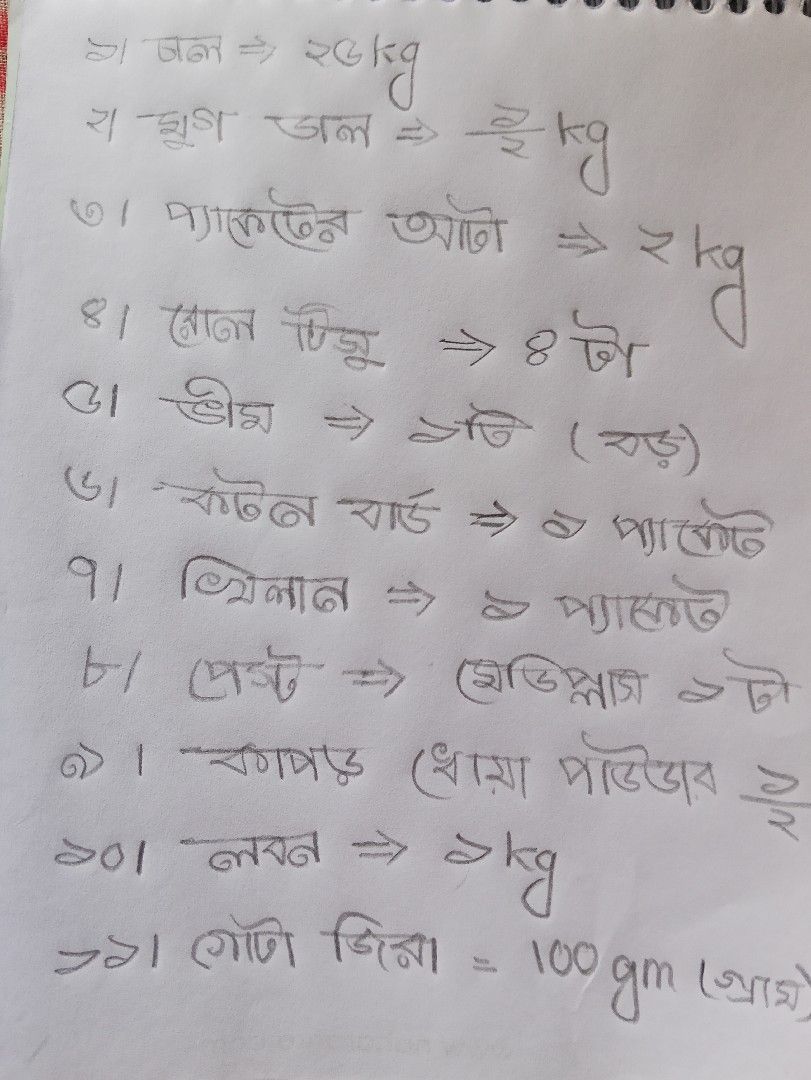 ১। চাল ⇒ ২৫kg
২। মুগ ডাল ⇒ ১/২ kg
৩। প্যাকেটের আটা ⇒ ২ kg
৪। রোল টিসু ⇒ ৪ টা
৫। ভীম ⇒ ১টি (বড়)
৬। কটন বার্ড ⇒ ১ প্যাকেট
৭। খিলান ⇒ ১ প্যাকেট
৮। পেস্ট ⇒ মেডিপ্লাস ১ টা
৯। কাপড় ধোয়া পাউডার ১/২
১০। লবন ⇒ ১ kg
১১। গোটা জিরা = 100 gm (গ্রাম)